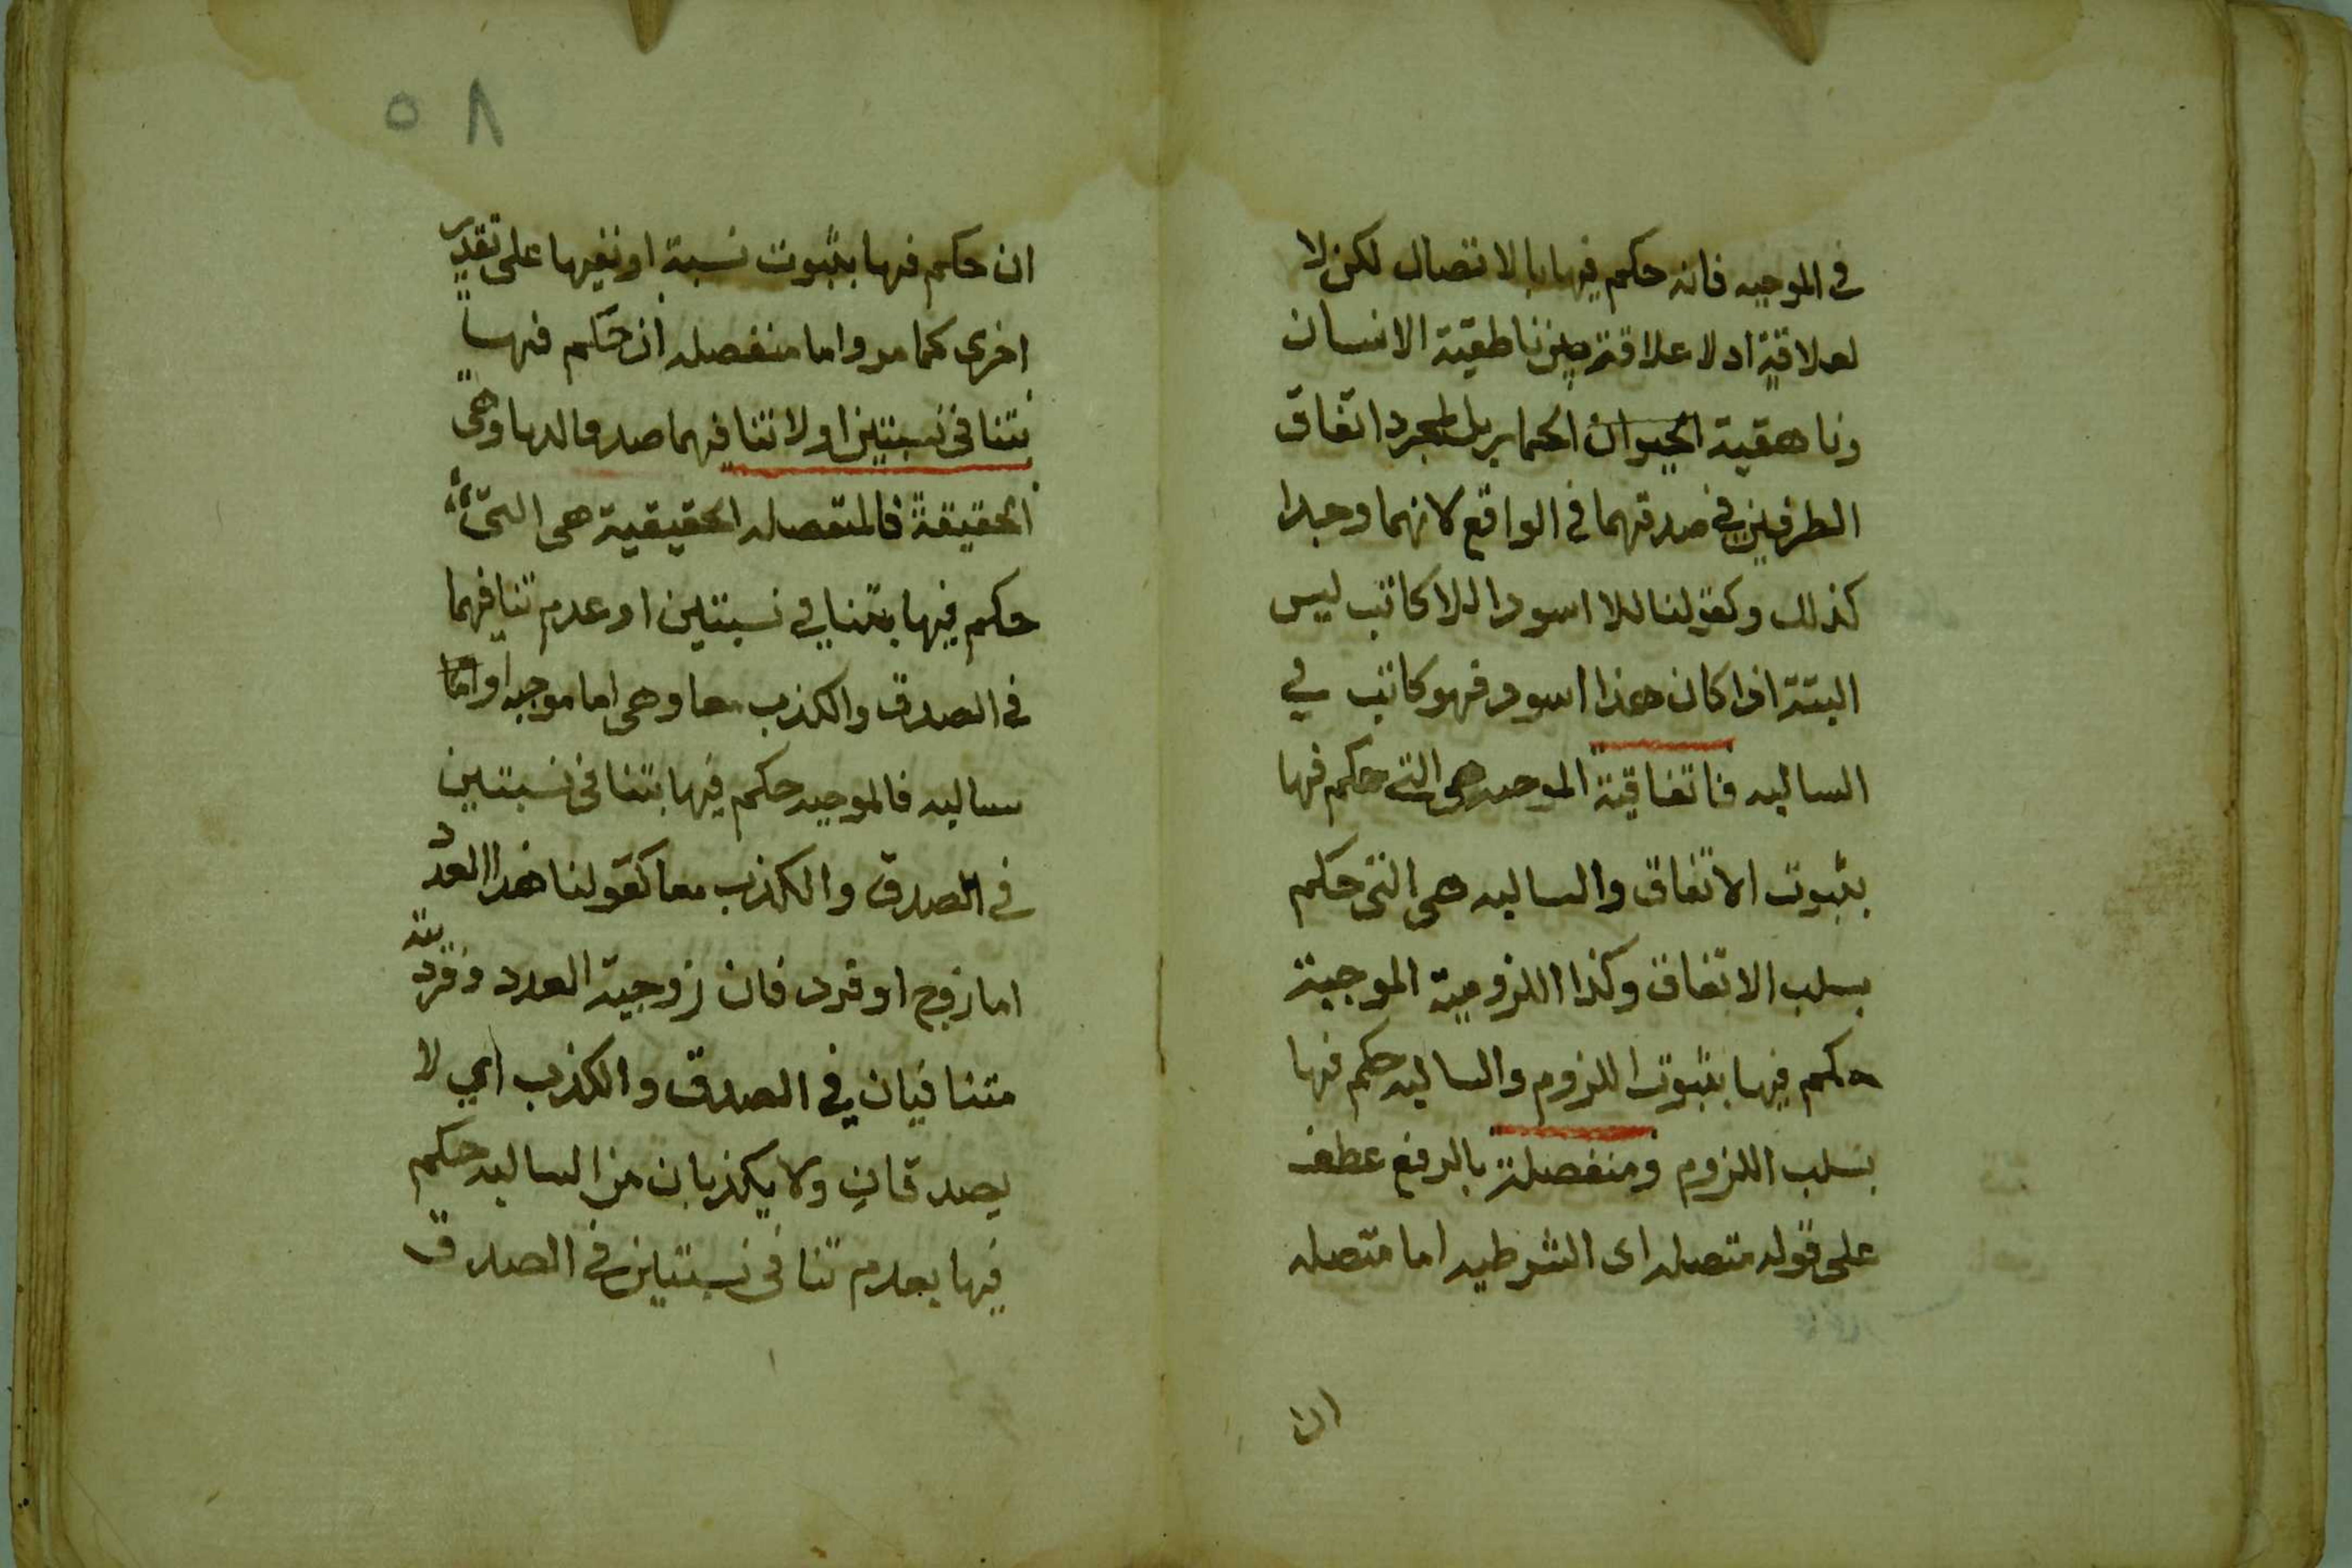 في الموجبه فانه حكم فيها بالاتصال لكن لا
لعلاقة اد لا علاقة بين ناطقية الانسان
وناهقية الحيوان الحمار بل لمجرد اتفاق
الطرفين في صدقهما في الواقع لانهما وجدا
كذلك وكقولنا للا اسود اللاكاتب ليس
البتة اذا كان هذا اسود فهو كاتب في
السالبه فاتفاقية الموجبه هي التي حكم فيها
بثبوت الاتفاق والسالبه هي التي حكم
بسلب الاتفاق وكذا اللزومية الموجبة
حكم فيها بثبوت اللزوم والسالبه حكم فيها
بسلب اللزوم ومنفصلة بالرفع عطف
على قوله متصله اى الشرطيه اما متصله
ان
٥٨
ان حكم فيها بثبوت نسبة او نفيها على تقدير
اخرى كما مر واما منفصله ان حكم فيها
بتنافى نسبتين او لا تنافيهما صدقا لدبا وهى
الحقيقة فالمتفصله الحقيقية هى التى
حكم فيها بتنافي نسبتين او عدم تنافيهما
في الصدق والكذب معا وهى اما موجبه او اما
سالبه فالموجبه حكم فيها بتنافى نسبتين
في الصدق والكذب معا كقولنا هذا العدد
اما زوج او فرد فان زوجية العدد وفرديته
متنافيان في الصدق والكذب اي لا
يصدقان ولا يكذبان من السالبه حكم
فيها بعدم تنافى نسبتين في الصدق